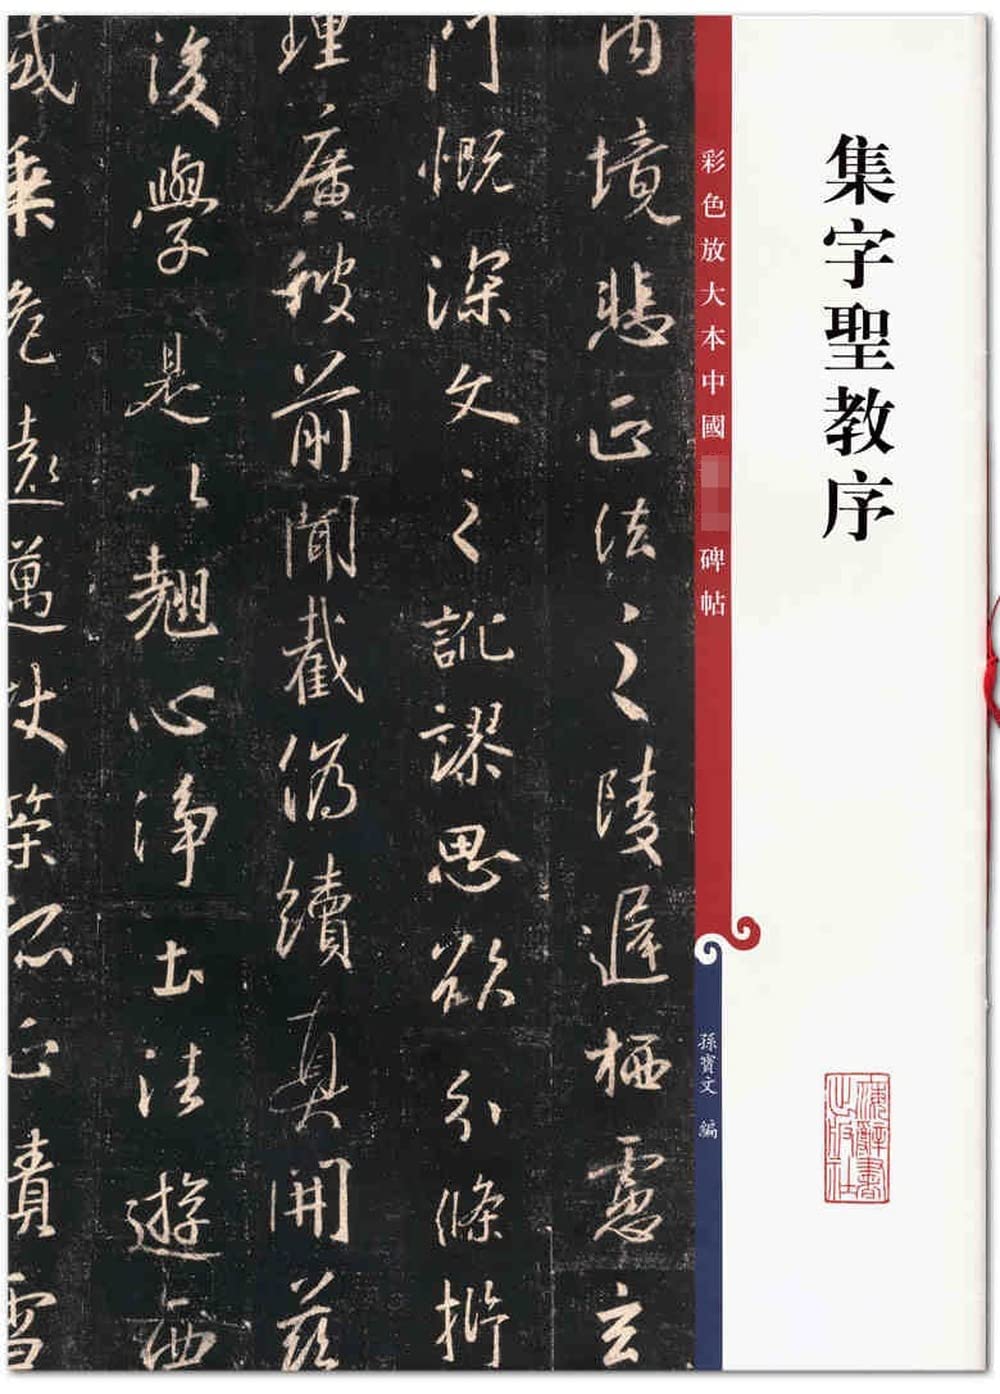 集字聖教序
上海辭書出版社
彩色放大本中國
碑帖
孫寶文 編
內境悲正法之陵遲栖慮玄
門慨深文之訛謬思欲分條析
理廣彼前聞截偽續真開茲
後學是以翹心淨土法遊西
域乘危遠邁杖策孤征積雪